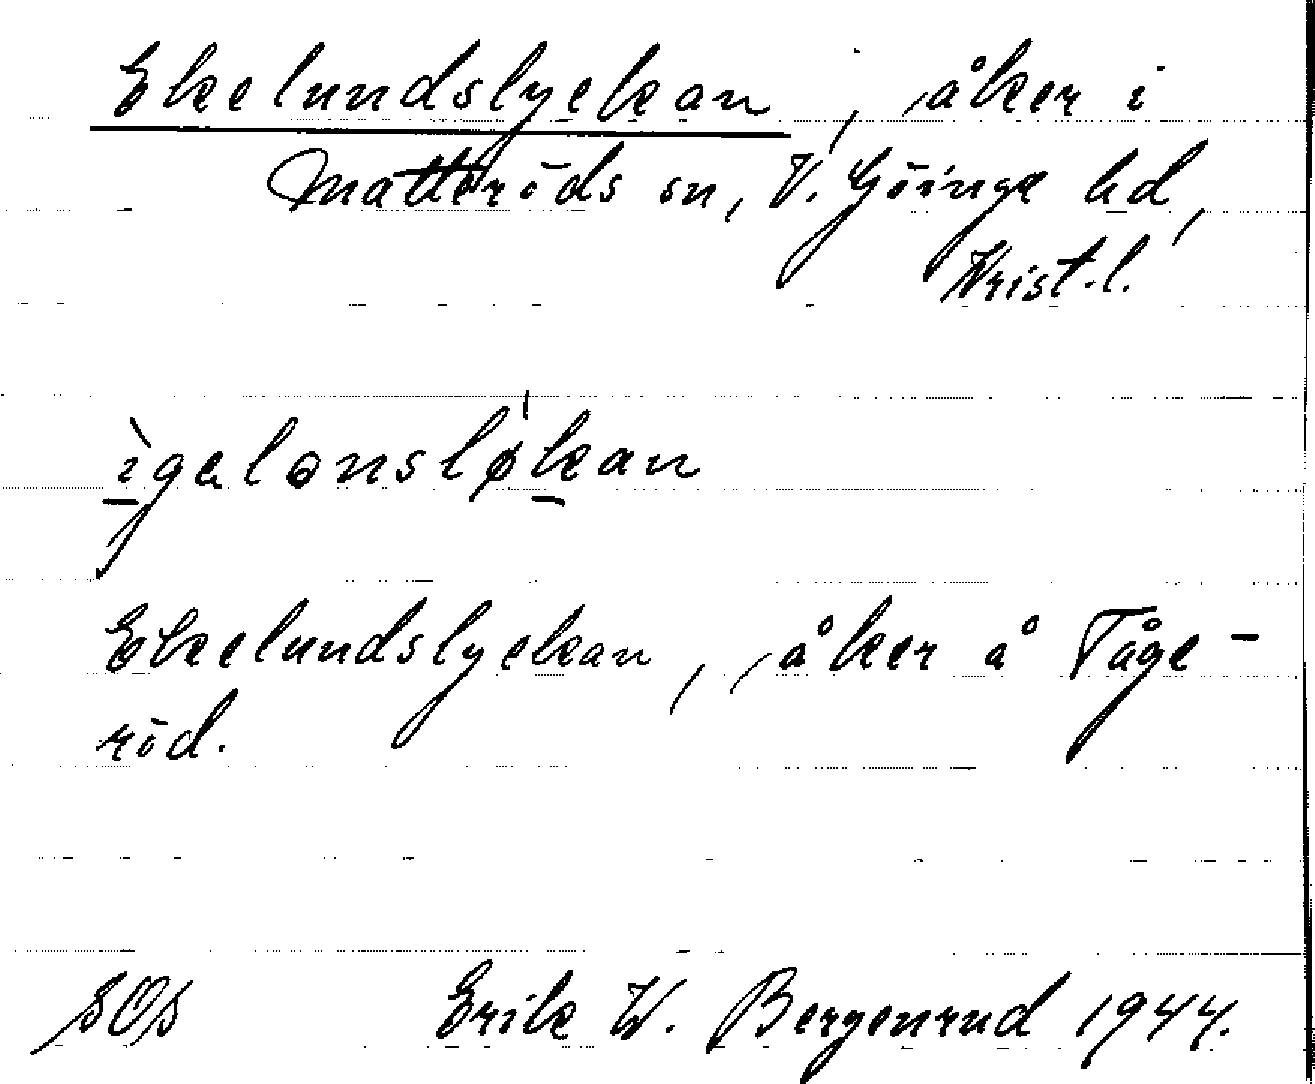 Ekelundslyckan, åker i
Matteröds sn, V. Göinge hd,
Krist. l.
ì̱gəlonslø̍ḵan
Ekelundslyckan, åker å Tåge-
röd.
SOS Erik W. Bergenrud 1944.